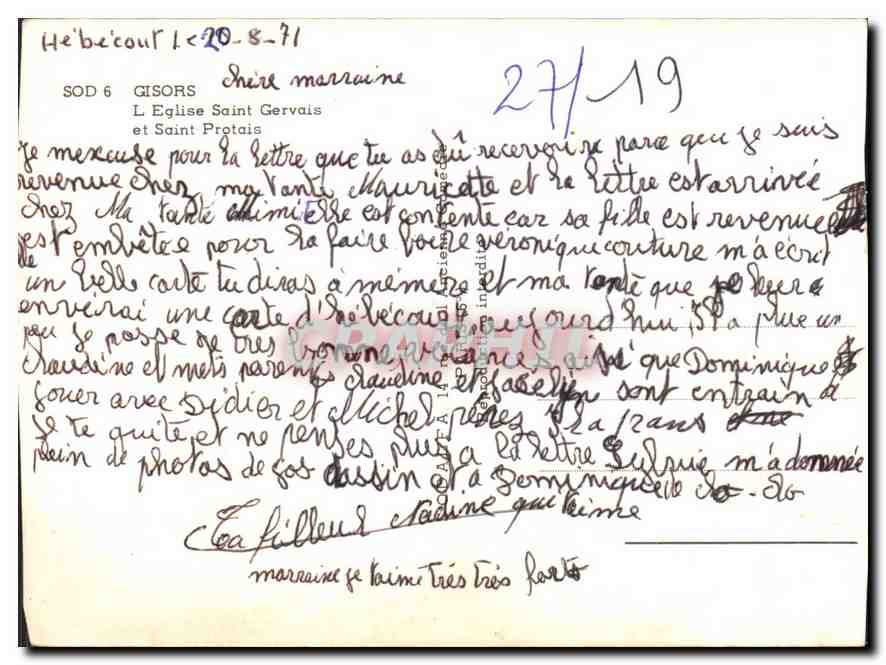 Hébécourt le 20-8-71
chère marraine
27/19
SOD 6 GISORS
L Eglise Saint Gervais
et Saint Protais
je mexcuse pour la lettre que tu as dû recevoire parce que je suis
revenue chez ma tante Mauricette et la lettre est arrivée
chez Ma tante Mimi Elle est contente car sa fille est revenue
est embêtée pour la faire boire véronique couture m'a écrit
un belle carte tu diras à mémère et ma tante que je leurs
enverai une carte d'hébécourt aujourd'hui il a plue un
peu je passe de très bonne vacances ainsi que Dominique
claudine et mets parents claudine et Jocelyn sont entrain à
jouer avec Didier et Michel
je te quite et ne penses plus a la lettre Sylvie m'a donnnée
plein de photos de gos dassin et a Dominique de clo-clo
Ta filleul Nadine qui t'aime
marraine je t'aime très très fort
Reproduction interdite